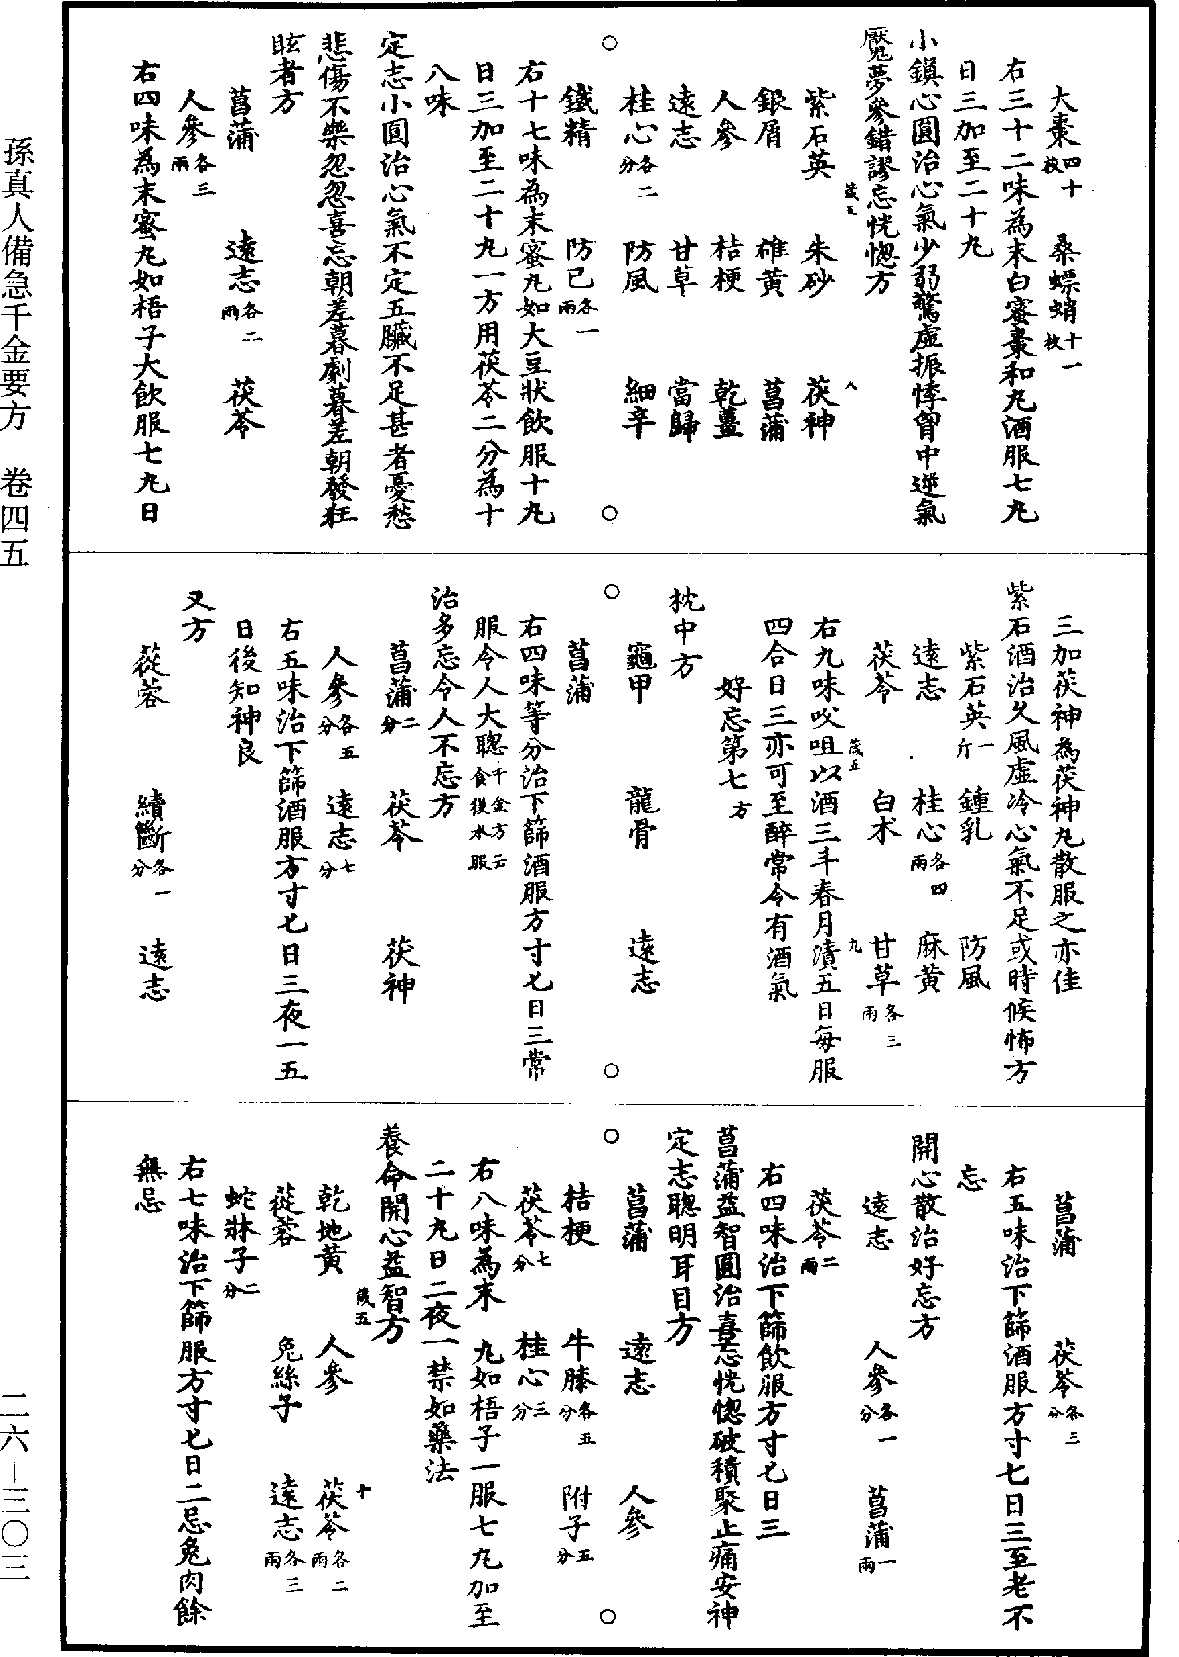 大棗四十枚　桑螵蛸十一枚
右三十二味為末白蜜棗和丸酒服七丸
日三加至二十丸
小鎮心圓治心氣少弱驚虛振悸胷中逆氣
魘夢參錯謬忘恍惚方
蕆五
八
紫石英　朱砂　茯神
銀屑　雄黃　菖蒲
人參　桔梗　乾薑
遠志　甘草　當歸
桂心各二分　防風　細辛
鐵精　防己各一兩
右十七味為末蜜丸如大豆狀飲服十丸
日三加至二十丸一方用茯苓二分為十
八味
定志小圓治心氣不定五臟不足甚者憂愁
悲傷不樂忽忽喜忘朝差暮劇暮差朝發狂
眩者方
菖蒲　遠志各二兩　茯苓
人參各三兩
右四味為末蜜丸如梧子大飲服七丸日
三加茯神為茯神丸散服之亦佳
紫石酒治久風虛冷心氣不足或時候怖方
紫石英一斤　鍾乳　防風
遠志　桂心各四兩　麻黃
茯苓　白朮　甘草各三兩
蕆五
九
右九味㕮咀以酒三斗春月漬五日每服
四合日三亦可至醉常令有酒氣
好忘第七方
枕中方
龜甲　龍骨　遠志
菖蒲
右四味等分治下篩酒服方寸匕日三常
服令人大聰千金方云食後水服
治多忘令人不忘方
菖蒲二分　茯苓　茯神
人參各五分　遠志七分
右五味治下篩酒服方寸匕日三夜一五
日後知神良
又方
蓯蓉　續斷各一分　遠志
菖蒲　茯苓各三分
右五味治下篩酒服方寸匕日三至老不
忘
開心散治好忘方
遠志　人參各一分　菖蒲一兩
茯苓二兩
右四味治下篩飲服方寸匕日三
菖蒲益智圓治喜忘恍惚破積聚止痛安神
定志聰明耳目方
菖蒲　遠志　人參
桔梗　牛膝各五分　附子五分
茯苓七分　桂心三分
右八味為末　丸如梧子一服七丸加至
二十丸日二夜一禁如藥法
養命開心益智方
蕆五
十
乾地黃　人參　茯苓各二兩
蓯蓉　兔絲子　遠志各三兩
蛇牀子二分
右七味治下篩服方寸匕日二忌兔肉餘
無忌
孫真人備急千金要方　卷四五
二六－三〇三